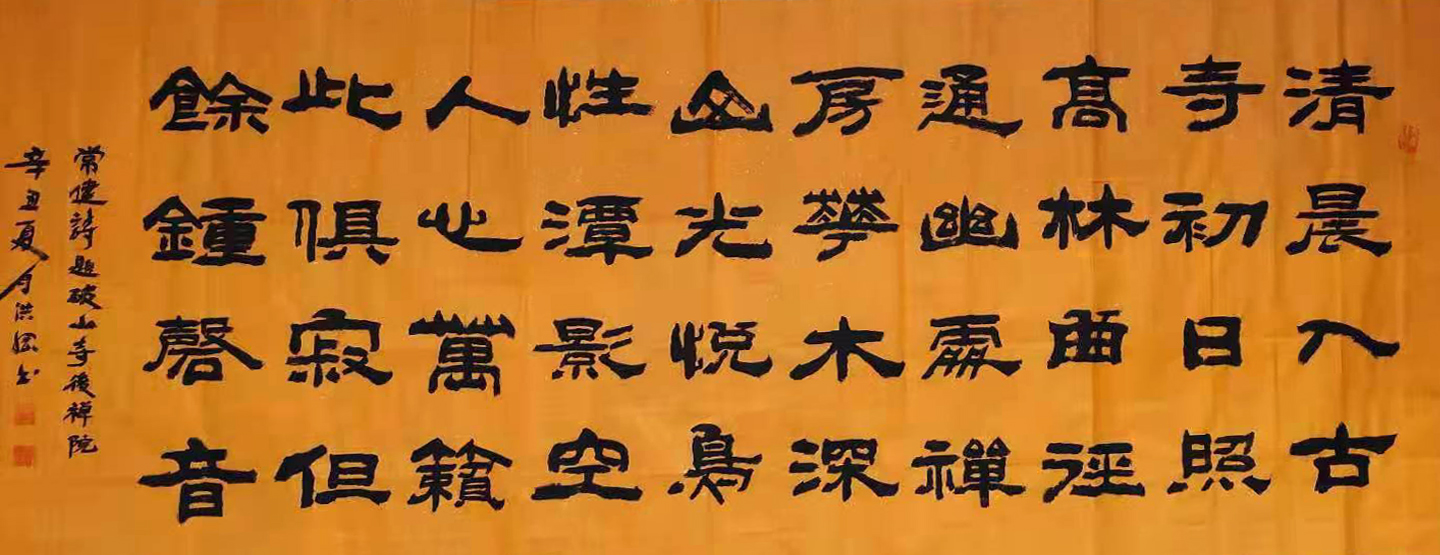 清晨入古
寺初日照
髙林曲徑
通幽處禪
房華木深
山光悦鳥
性潭影空
人心萬籟
此俱寂但
餘鍾磬音
常健詩題破山寺後禪院
辛丑夏月洪书